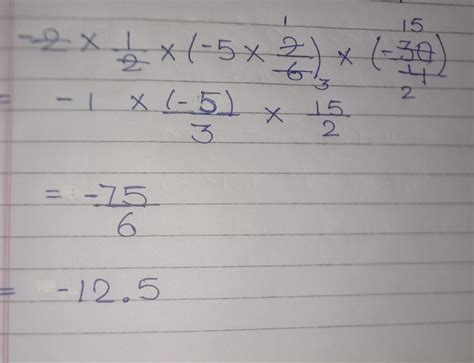 -2 × 1/2 × (-5 × 2/6) × (-30/4)
1 3 15 2
= -1 × (-5)/3 × 15/2
= -75/6
= -12.5